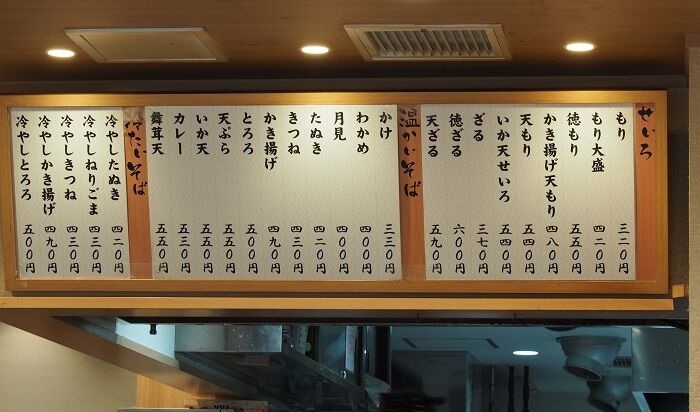 せいろ
もり 三二〇円
もり大盛 四二〇円
徳もり 五五〇円
かき揚げ天もり 四八〇円
天もり 五四〇円
いか天せいろ 五四〇円
ざる 三七〇円
徳ざる 六〇〇円
天ざる 五九〇円
温かいそば
かけ 三三〇円
わかめ 四〇〇円
月見 四〇〇円
たぬき 四二〇円
きつね 四三〇円
かき揚げ 四九〇円
とろろ 五〇〇円
天ぷら 五五〇円
いか天 五五〇円
カレー 五三〇円
舞茸天 五五〇円
冷たいそば
冷やしたぬき 四二〇円
冷やしねりごま 四三〇円
冷やしきつね 四三〇円
冷やしかき揚げ 四九〇円
冷やしとろろ 五〇〇円